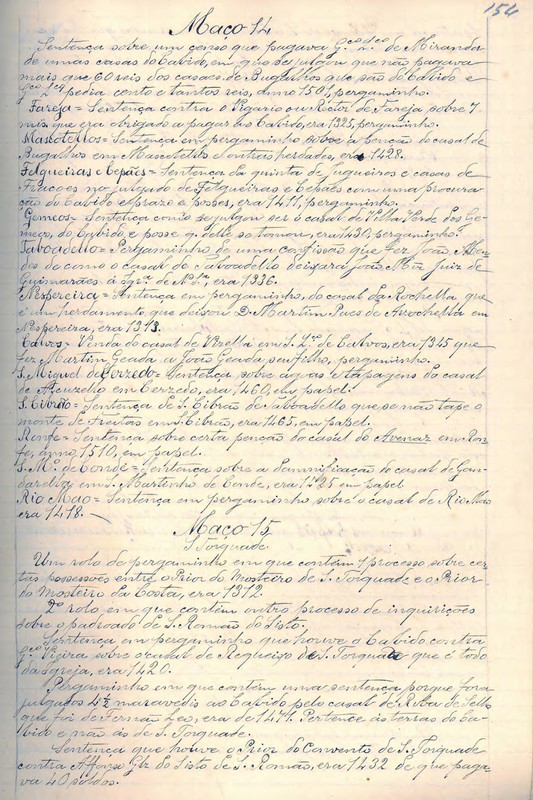 154
Maço 14
Sentença sobre um censo que pagava G.co L.co de Miranda
de umas casas do Cabido, em que se julgou que não pagava
mais que 60 reis dos casaes de Bugalhos que são do Cabido e
pedia cento e tantos reis, anno 1507, pergaminho.
Fareja = Sentença contra o Vigario ou Reitor de Fareja sobre 7
mis. que era obrigado a pagar ao Cabido, era 1325, pergaminho.
Mascotellos = Sentença em pergaminho sobre a benção do casal de
Bugalhos em Mascotellos e outras herdades, era 1428.
Felgueiras e Cepães = Sentença da quinta de Jugueiros e casas de
no julgado de Felgueiras e Cepães com uma procura
ção do Cabido e prazo e posses, era 1411, pergaminho.
Gomeos = Sentença como se julgou ser o casal de Villa Verde dos Go-
meos, do Cabido e posse q. elle se tomou, era 1430, pergaminho.
Taboadello = Pergaminho de uma confissão que fez João Men-
des de como o casal de Taboadello deixara João Miz Juiz de
Guimarães á Igr.a de N.S., era 1336.
Nespereira = Sentença em pergaminho, do casal da Rochella, que
é um herdamento que deixou D. Martim Paes de Arochella em
Nespereira, era 1313.
Calvos = Venda do casal de Vizella em S. L.ço de Calvos, era 1345 que
fez Martim Geada a João Geada, seu filho, pergaminho.
S. Miguel de Cerzedo = Sentença sobre aguas e tapagens do casal
de Azevedo em Cerzedo, era 1460, em papel.
S. Cibrão = Sentença de S. Cibrão de Taboadello que se não tape o
monte de Freitas em S. Cibrão, era 1465, em papel.
Ronfe = Sentença sobre certa penção do casal do Avenaz em Ron-
fe, anno 1510, em papel.
S. M.o de Conde = Sentença sobre a damnificação do casal de Gon-
darellos, em S. Martinho de Conde, era 1525 em papel
Rio Mao = Sentença em pergaminho sobre o casal de Rio Mao
era 1418.
Maço 15
S. Torquade
Um rolo de pergaminho em que contém 1 processo sobre cer-
tas possessões entre o Prior do Mosteiro de S. Torquade e o Prior
do Mosteiro da Costa, era 1312.
2.o rolo em que contém outro processo de inquirições
sobre o padroado de S. Romão do Sisto.
Sentença em pergaminho que houve o Cabido contra
G.co Vieira sobre o casal de Requeixo de S. Torquade que é todo
da Igreja, era 1420.
Pergaminho em que contém uma sentença porque fora
julgados 4 1/2 maravedis ao Cabido pelo casal de Riba de Selho
que foi de Fernão Leo, era de 1411. Pertence ás terras do Ca-
bido e não ás de S. Torquade.
Sentença que houve o Prior do Convento de S. Torquade
contra Affonso Glz do Sisto de S. Romão, era 1432 de que paga-
va 40 soldos.